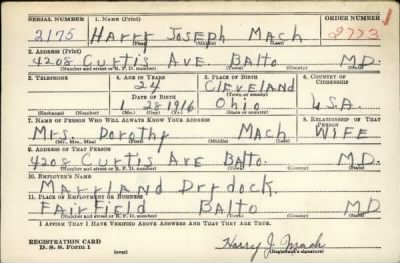 SERIAL NUMBER 1. NAME (Print) ORDER NUMBER
2175 HARRY JOSEPH MACH 2773
(First) (Middle) (Last)
2. ADDRESS (Print)
4208 CURTIS AVE. BALTO MD.
(Number and street or R. F. D. number) (Town) (County) (State)
3. TELEPHONE 4. AGE IN YEARS 5. PLACE OF BIRTH 6. COUNTRY OF CITIZENSHIP
24 CLEVELAND
DATE OF BIRTH (Town or county)
1 28 1916 OHIO U.S.A.
(Exchange) (Number) (Mo.) (Day) (Yr.) (State or country)
7. NAME OF PERSON WHO WILL ALWAYS KNOW YOUR ADDRESS 8. RELATIONSHIP OF THAT PERSON
MRS. DOROTHY MACH WIFE
(Mr., Mrs., Miss) (First) (Middle) (Last)
9. ADDRESS OF THAT PERSON
4208 CURTIS AVE BALTO. MD.
(Number and street or R. F. D. number) (Town) (County) (State)
10. EMPLOYER'S NAME
MARYLAND DRYDOCK.
11. PLACE OF EMPLOYMENT OR BUSINESS
FAIRFIELD BALTO MD
(Number and street or R. F. D. number) (Town) (County) (State)
I AFFIRM THAT I HAVE VERIFIED ABOVE ANSWERS AND THAT THEY ARE TRUE.
REGISTRATION CARD
D. S. S. Form 1 (over) Harry J. Mach
(Registrant's signature)